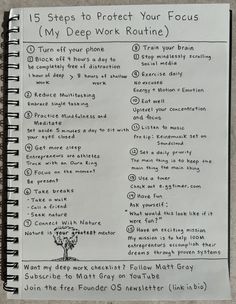 15 Steps to Protect Your Focus
(My Deep Work Routine)
① Turn off your phone
② Block off 4 hours a day to
be completely free of distraction
1 hour of deep work
& 8 hours of shallow work
② Reduce Multitasking
Embrace single tasking
③ Practice Mindfulness and
Meditate
Set aside 5 minutes a day to sit with
your eyes closed
④ Get more sleep
Entrepreneurs are athletes
Track with an Oura Ring
⑤ Focus on the moment
Be present
⑥ Take breaks
- Take a walk
- Call a friend
- Seek nature
⑦ Connect With Nature
Nature is your greatest mentor
⑧ Train your brain
⑨ Stop mindlessly scrolling
Social media
⑨ Exercise daily
No excuses
Energy = Motion = Emotion
⑩ Eat well
Uplevel your concentration
and focus
⑪ Listen to music
Pro tip: Reindmusik set on
Soundcloud
⑫ Set a daily priority
The main thing is to keep
the main thing the main thing
⑬ Use a timer
Check out e.ggtimer.com
⑭ Have fun
Ask yourself:
"What would this look like if it
were fun?"
⑮ Have an exciting mission
My mission is to help 100M
entrepreneurs accomplish their
dreams through proven systems
Want my deep work checklist? Follow Matt Gray
Subscribe to Matt Gray on YouTube
Join the free Founder OS newsletter (link in bio)